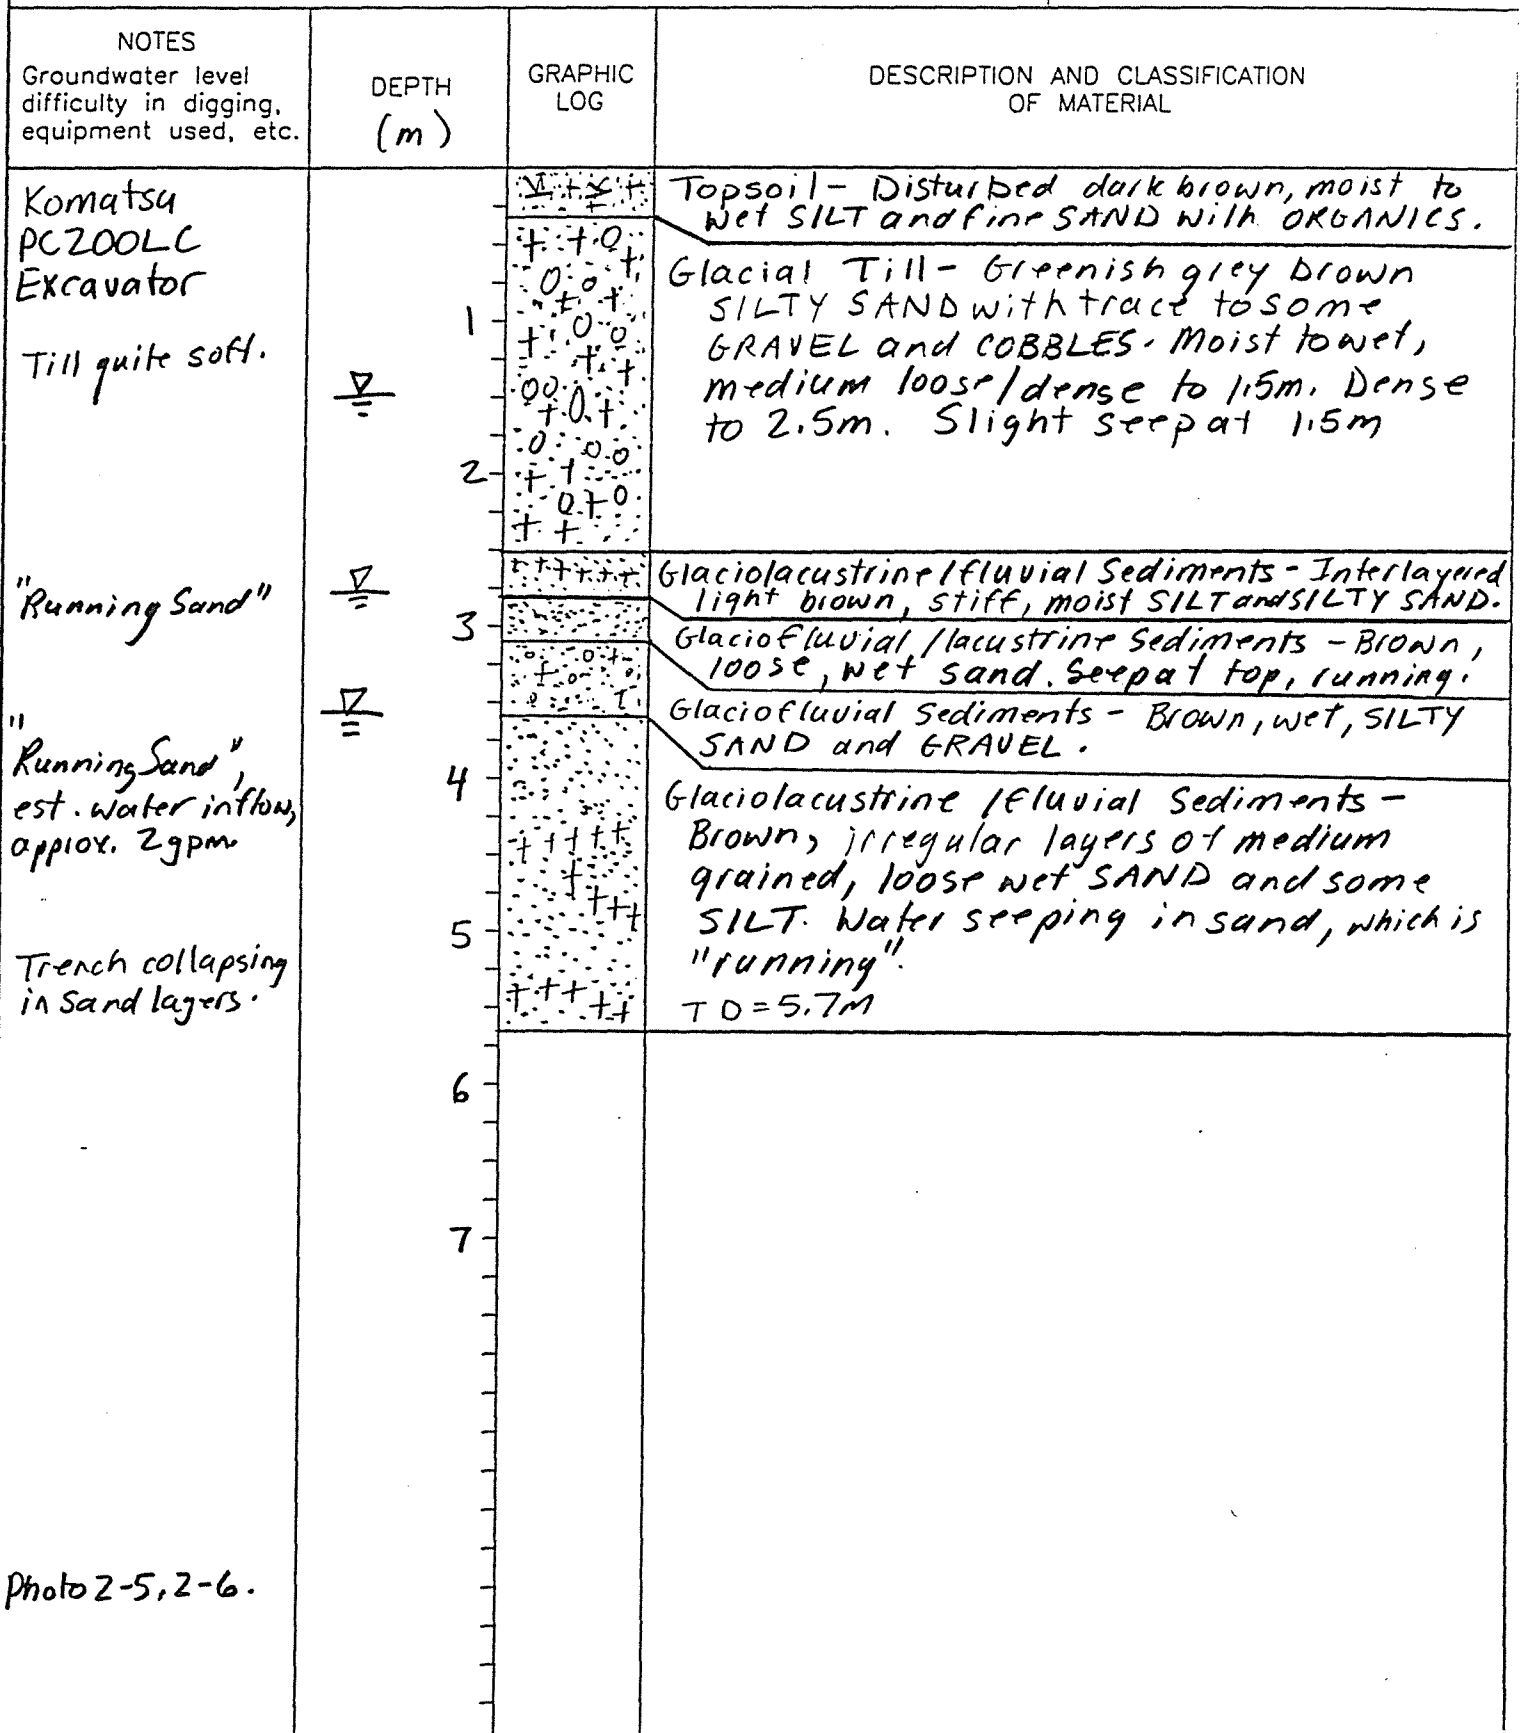 NOTES
Groundwater level
difficulty in digging,
equipment used, etc.
DEPTH
(m)
GRAPHIC
LOG
DESCRIPTION AND CLASSIFICATION
OF MATERIAL
Komatsu
PC200LC
Excavator
Till quite soft.
"Running Sand"
"Running Sand",
est. water inflow,
approx. 2gpm.
Trench collapsing
in sand layers.
Photo 2-5, 2-6.
1
2
3
4
5
6
7
Topsoil - Disturbed dark brown, moist to
wet SILT and fine SAND with ORGANICS.
Glacial Till - Greenish grey brown
SILTY SAND with trace to some
GRAVEL and COBBLES. Moist to wet,
medium loose/dense to 1.5m. Dense
to 2.5m. Slight seep at 1.5m
Glaciolacustrine/fluvial Sediments - Interlayered
light brown, stiff, moist SILT and SILTY SAND.
Glaciofluvial/lacustrine Sediments - Brown,
loose, wet sand. Seep at top, running.
Glaciofluvial Sediments - Brown, wet, SILTY
SAND and GRAVEL.
Glaciolacustrine/fluvial Sediments -
Brown, irregular layers of medium
grained, loose wet SAND and some
SILT. Water seeping in sand, which is
"running".
TD=5.7m